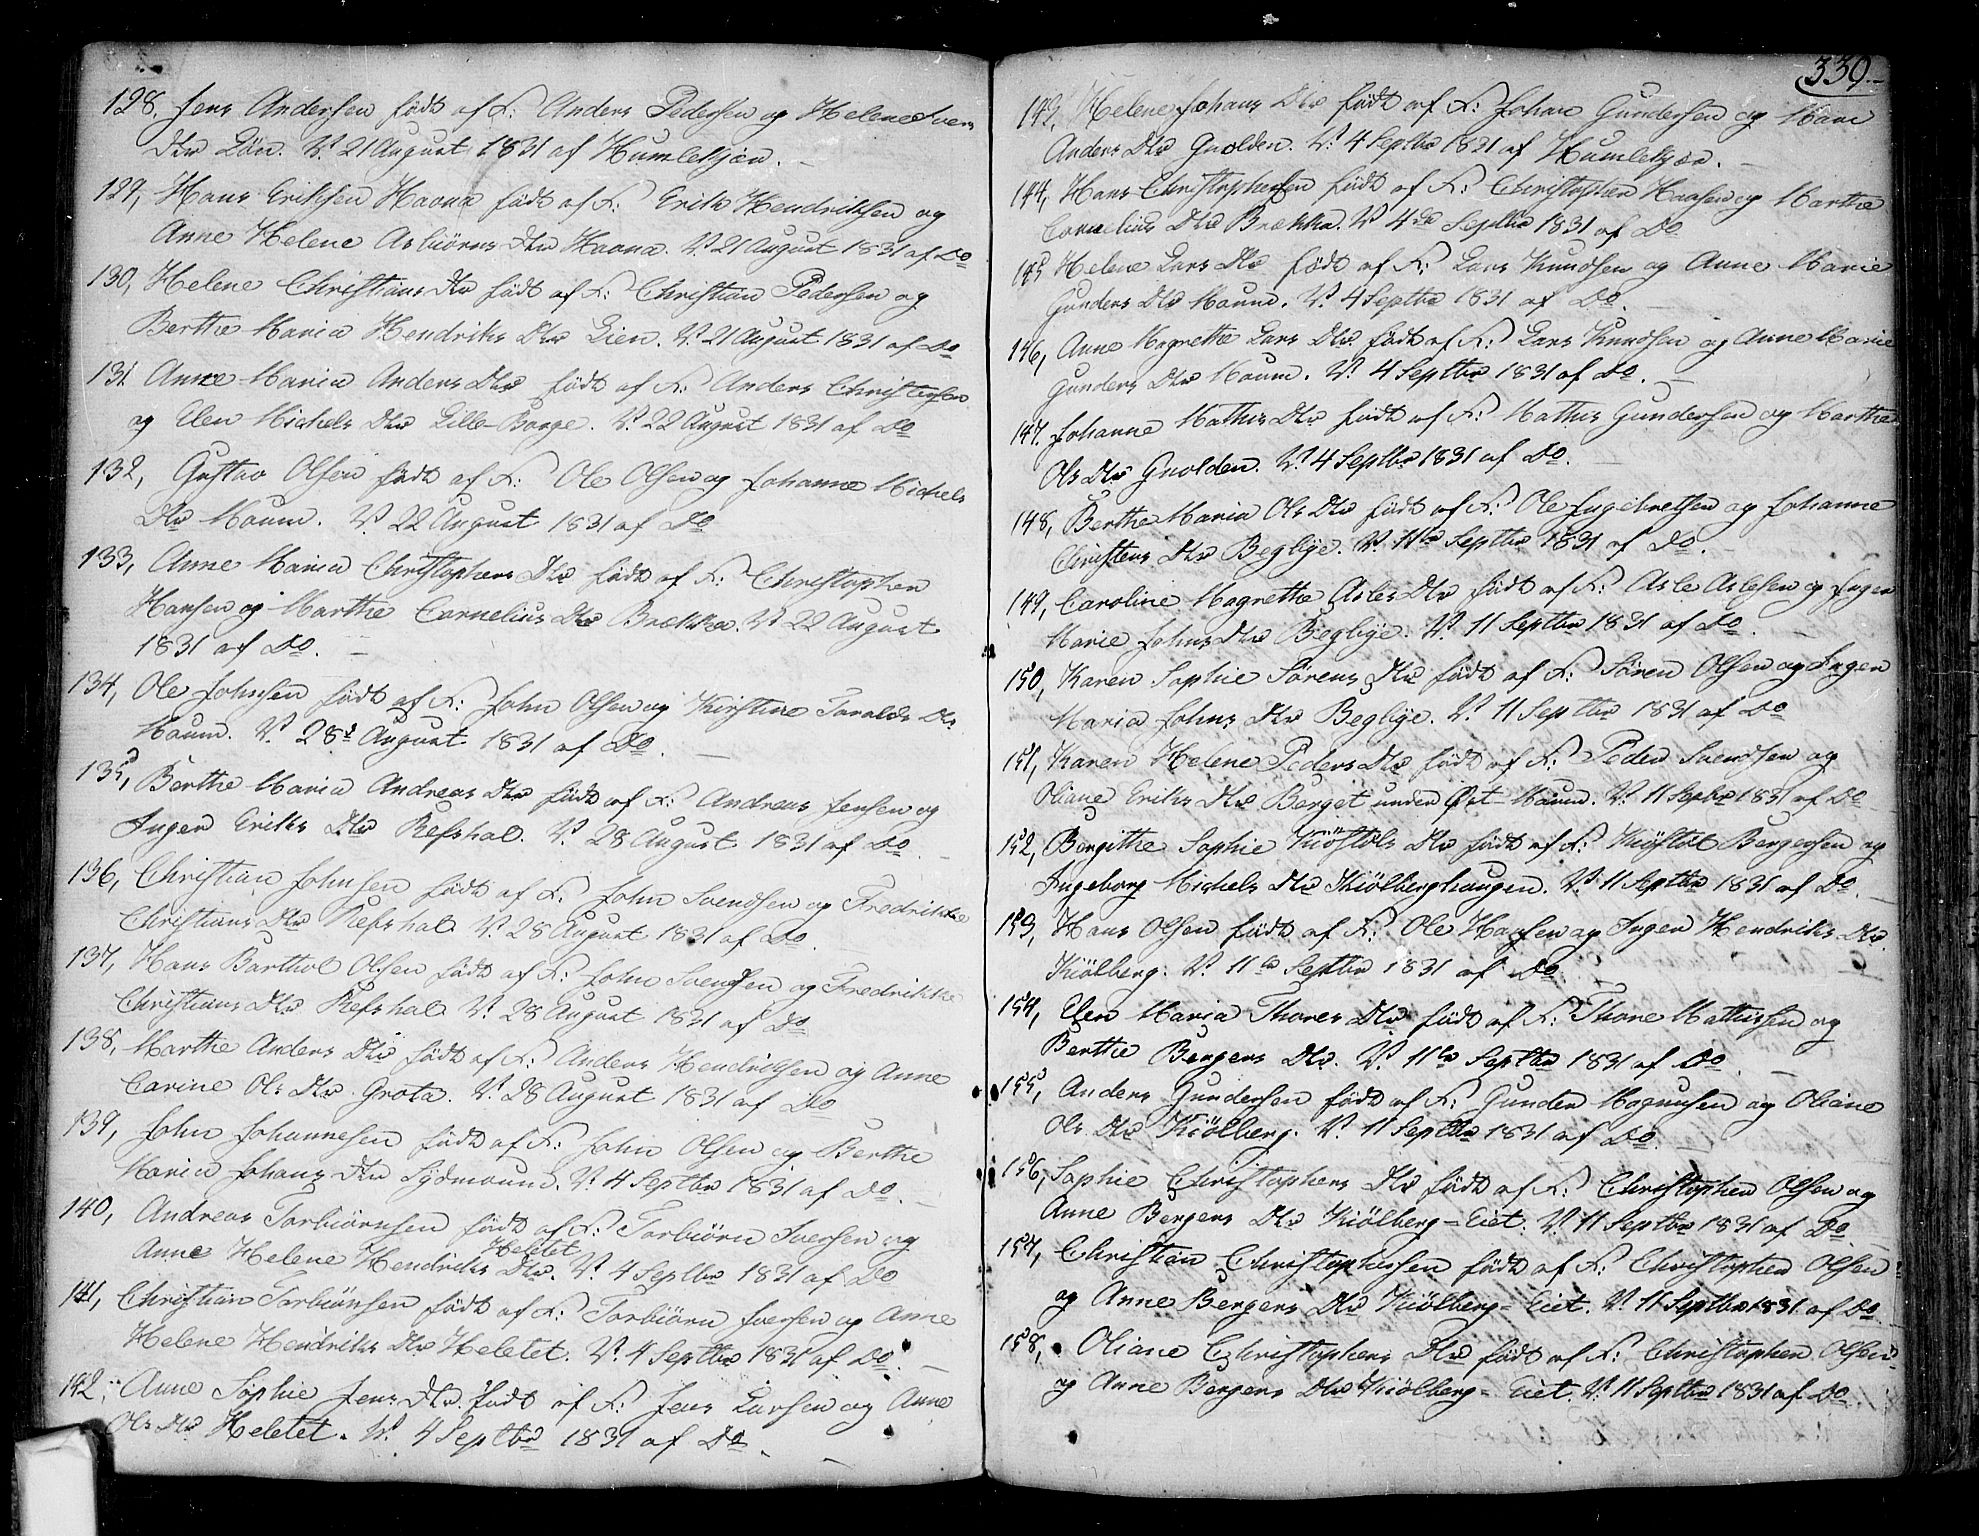 128. Jens Andersen födt af F: Anders Pedersen og Helene Svens
Dtr Lön. V. 21 August 1831 af Humlekjær. –
129, Hans Eriksen Haona födt af F: Erik Hendriksen og
Anne Helene Asbiörns Dtr Haona. V. 21 August 1831 af Do
130, Helene Christians Dtr födt af F: Christian Pedersen og
Berthe Maria Hendriks Dtr Lien. V. 21 August 1831 af Do
131 Anne Maria Anders Dtr födt af F: Anders Christensen
og Elen Michels Dtr Lille-Borge. V. 22 August 1831 af Do
132, Gustav Olsen födt af F: Ole Olsen og Johanne Michels
Dtr Maum. V. 22 August 1831 af Do
133, Anne Maria Christophers Dtr födt af F: Christopher
Hansen og Marthe Cornelius Dtr Brækka. V. 22 August
1831 af Do. –
134, Ole Johnsen födt af F: John Olsen og Kirstine Taralds Dtr
Maum. V. 28 August 1831 af Do. –
135, Berthe Maria Andreas Dtr födt af F: Andreas Jensen og
Inger Eriks Dtr Refshal. V. 28 August 1831 af Do. –
136, Christian Johnsen födt af F: John Svendsen og Fredrikke
Christians Dtr Refshal V. 28 August 1831 af Do.
137, Hans Barthol Olsen födt af F: John Svendsen og Fredrikke
Christians Dtr Refshal V. 28 August 1831 af Do
138, Marthe Anders Dtr födt af F: Anders Hendriksen og Anne
Carine Ols Dtr Grota. V. 28 August 1831 af Do
139, John Johannesen födt af F: John Olsen og Berthe
Maria Johans Dtr Sydmound. V. 4 Septbr 1831 af Do. –
140, Andreas Torbiörnsen födt af F: Torbiörn Iversen og
Anne Helene Hendriks Dtr Heletet. V. 4 Septbr 1831 af Do
141, Christian Torbiönsen födt af F: Torbiörn Iversen og Anne
Helene Hendriks Dtr Heletet. V. 4 Septbr 1831 af Do. –
142, Anne Sophie Jens Dtr födt af F: Jens Larsen og Anne
Ols Dtr Heletet. V. 4 Septbr 1831 af Do. –
339.–
143, Helene Johans Dtr födt af F: Johan Gundersen og Mari
Anders Dtr Gnolden. V. 4 Septbr 1831 af Humlekjær. –
144, Hans Christophersen födt af F: Christopher Hansen og Marthe
Cornelius Dtr Brækka. V. 4de Septbr 1831 af Do
145 Helene Lars Dtr födt af F: Lars Knudsen og Anne Marie
Gunders Dtr Maum. V. 4 Septbr 1831 af Do. –
146, Anne Magrethe Lars Dtr födt af F: Lars Knudsen og Anne Marie
Gunders Dtr Maum. V. 4 Septbr 1831 af Do. –
147. Johanne Mathis Dtr födt af F: Mathis Gundersen og Marthe
Ols Dtr Gnolden. V. 4 Septbr 1831 af Do. –
148, Berthe Maria Ols Dtr födt af F: Ole Ingebretsen og Johanne
Christens Dtr Beglye. V. 11te Septbr 1831 af Do. –
149, Caroline Magrethe Asles Dtr födt af F: Asle Aslesen og Inger
Marie Johns Dtr Beglye. V. 11 Septbr 1831 af Do. –
150, Karen Sophie Sörens Dtr födt af F: Sören Olsen og Inger
Maria Johns Dtr Beglye. V. 11 Septbr 1831 af Do
151, Karen Helene Peders Dtr födt af F: Peder Svendsen og
Oliane Eriks Dtr Berget under Öst-Maum. V. 11 Septbr 1831 af Do –
152, Bergithe Sophie Kiöstöls Dtr födt af F: Kiöstöl Bergersen og
Ingeborg Michels Dtr Kiölberghaugen. V. 11 Septbr 1831 af Do. –
153, Hans Olsen födt af F: Ole Hansen og Inger Hendriks Dtr
Kiölberg. V. 11te Septbr 1831 af Do.
154, Elen Maria Thores Dtr födt af F: Thore Mathissen og
Berthe Bergers Dtr. V. 11te Septbr 1831 af Do –
155, Anders Gundersen födt af F: Gunder Magnusen og Oliane
Ols Dtr Kiölberg. V. 11 Septbr 1831 af Do.
156, Sophie Christophers Dtr födt af F: Christopher Olsen og
Anne Bergers Dtr Kiölberg-Eiet. V. 11 Septbr 1831 af Do.
157, Christian Christophersen födt af F: Christopher Olsen
og Anne Bergers Dtr Kiölberg-Eiet. V. 11 Septbr 1831 af Do. –
158, Oliane Christophers Dtr födt af F: Christopher Olsen
og Anne Bergers Dtr Kiölberg-Eiet. V. 11 Septbr 1831 af Do